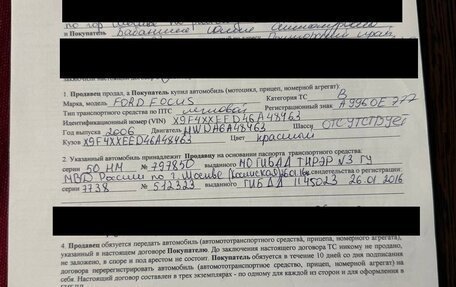 по гор Москве
и Покупатель
заключили настоящий договор
1. Продавец продал, а Покупатель купил автомобиль (мотоцикл, прицеп, номерной агрегат):
Марка, модель FORD FOCUS Категория ТС B
Тип транспортного средства по ПТС легковой Регистрационный знак А996ОЕ 777
Идентификационный номер (VIN) X9F4XXEED46A48463
Год выпуска 2006 Двигатель HWDA6A48463 Шасси ОТСУТСТВУЕТ
Кузов X9FYXXEED46A48463 Цвет красный
2. Указанный автомобиль принадлежит Продавцу на основании паспорта транспортного средства:
серии 50 НМ № 797850 выданного МО ГИБДД ТНРЭР №3 ГУ
МВД России по г. Москве и свидетельства о регистрации:
серии 7738 № 512323 выданного ГИБДД 1145023 26.01.2016
4. Продавец обязуется передать автомобиль (автомототранспортного средства, прицепа, номерного агрегата),
указанный в настоящем договоре Покупателю. До заключения настоящего договора ТС никому не продано,
не заложено, в споре и под арестом не состоит. Покупатель обязуется в течение 10 дней со дня подписания
договора перерегистрировать автомобиль (автомототранспортное средство, прицеп, номерной агрегат) на
себя. Настоящий договор составлен в трех экземплярах - по одному для каждой из сторон и для оформления в